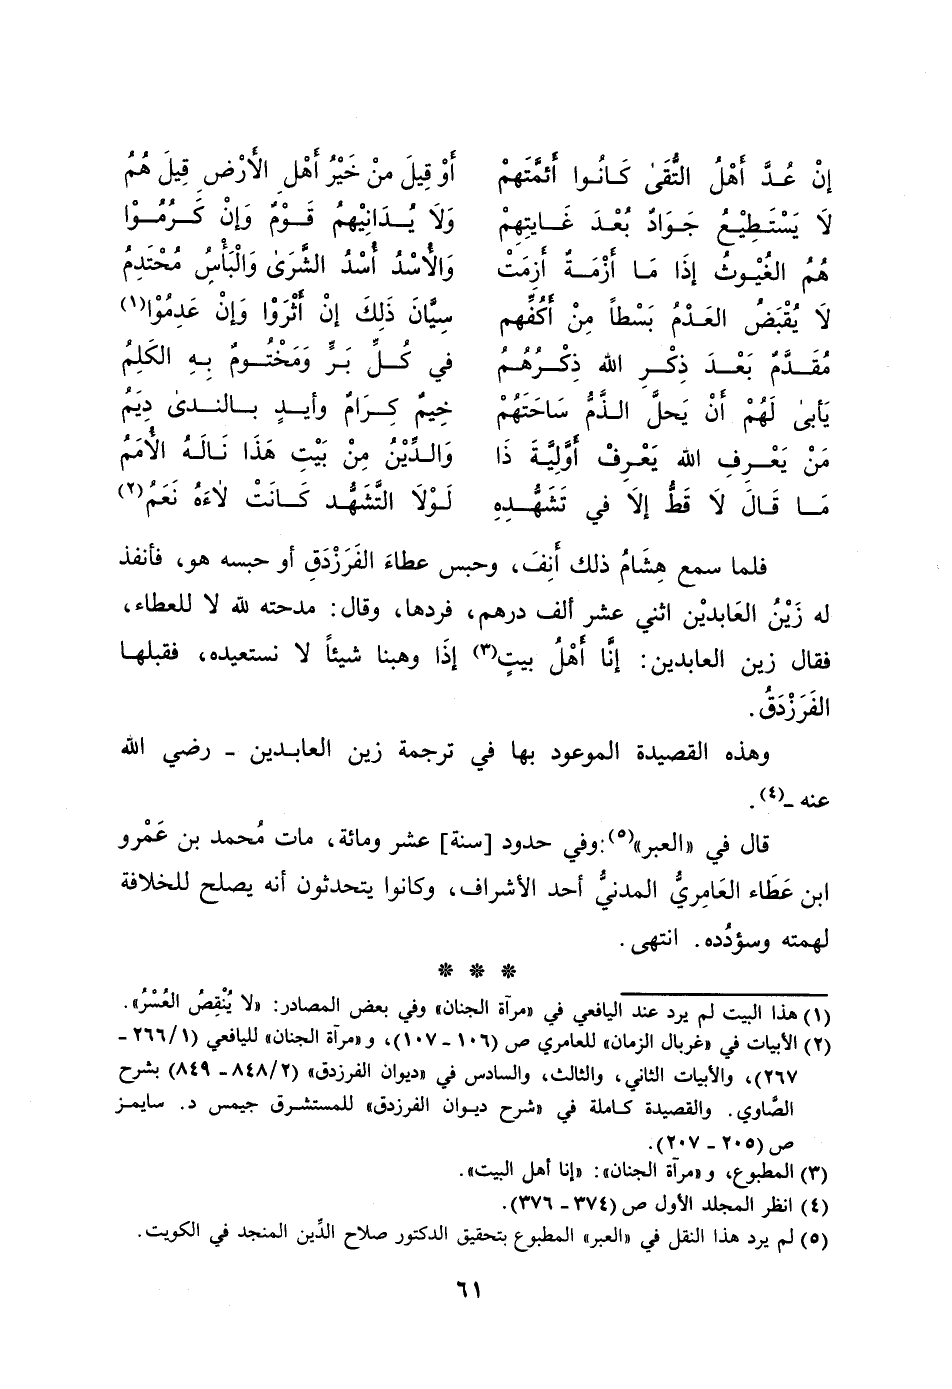 إنْ عُدَّ أَهْلُ التُّقَىٰ كَـانُـوا أَئمَّتَهمْ أَوْ قِيلَ منْ خَيْرُ أَهْلِ الأَرْضِ قِيلَ هُمُ
لَا يَسْتَـطِيْـعُ جَـوَادٌ بُعْـدَ غَـايتِهِمْ وَلَا يُـدَانِيْهِمُ قَـوْمٌ وَإنْ كَـرُمُـوْا
هُمُ الغُيُوثُ إذَا مَـا أَزْمَـةٌ أَزِمَتْ وَالأُسْدُ أُسْدُ الشَّرَىٰ وَالْبَأْسُ مُحْتَدِمُ
لَا يُقْبَضُ العَدْمُ بَسْطاً مِنْ أَكُفِّهم سِيَّانَ ذَلِكَ إنْ أَثْرَوْا وَإنْ عَدِمُوْا(١)
مُقَـدَّمٌ بَعْـدَ ذِكْـرِ الله ذِكْـرُهُـم في كُـلِّ بَـرٍّ وَمَخْتُـومٌ بِـهِ الكَلِمُ
يَأبىٰ لَهُمْ أَنْ يَحلَّ الـذَّمُّ سَاحَتَهُمْ خِيمٌ كِـرَامٌ وأيـدٍ بـالنـدىٰ دِيَمُ
مَنْ يَعْـرِفِ الله يَعْرِفْ أَوَّلِيَّةَ ذَا وَالـدِّيْنُ مِنْ بَيْتِ هَذَا نَـالَـهُ الأُمَمُ
مَـا قَـالَ لَا قَطُّ إلَا في تَشَهُّـدِهِ لَـوْلَا التَّشَهُّـد كَـانَتْ لَاءَهُ نَعَمُ(٢)
فلما سمع هِشَامُ ذلك أَنِفَ، وحبس عطاءَ الفَرَزْدَقِ أو حبسه هو، فأنفذ
له زَيْنُ العَابديْن اثني عشر ألف درهم، فردها، وقال: مدحته لله لا للعطاء،
فقال زين العابدين: إنَّا أَهْلُ بيتٍ(٣) إذَا وهبنا شيئاً لا نستعيده، فقبلهـا
الفَرَزْدَقُ.
وهذه القصيدة الموعود بها في ترجمة زين العابـدين ـ رضي الله
عنه ـ(٤).
قال في «العبر»(٥): وفي حدود [سنة] عشر ومائة، مات مُحمد بن عَمْرو
ابن عَطَاء العَامِريُّ المدنيُّ أحد الأشراف، وكانوا يتحدثون أنه يصلح للخلافة
لهمته وسؤدُده. انتهى.
* * *
(١) هذا البيت لم يرد عند اليافعي في «مرآة الجنان» وفي بعض المصادر: «لا يُنْقِصُ العُسْرُ».
(٢) الأبيات في «غربال الزمان» للعامري ص (١٠٦ ـ ١٠٧)، و «مرآة الجنان» لليافعي (١/ ٢٦٦ ـ
٢٦٧)، والأبيات الثاني، والثالث، والسادس في «ديوان الفرزدق» (٢/ ٨٤٨ ـ ٨٤٩) بشرح
الصَّاوي. والقصيدة كـاملة في «شرح ديـوان الفرزدق» للمستشرق جيمس د. سايمـز
ص (٢٠٥ ـ ٢٠٧).
(٣) المطبوع، و «مرآة الجنان»: «إنا أهل البيت».
(٤) انظر المجلد الأول ص (٣٧٤ ـ ٣٧٦).
(٥) لم يرد هذا النقل في «العبر» المطبوع بتحقيق الدكتور صلاح الدِّين المنجد في الكويت.
٦١